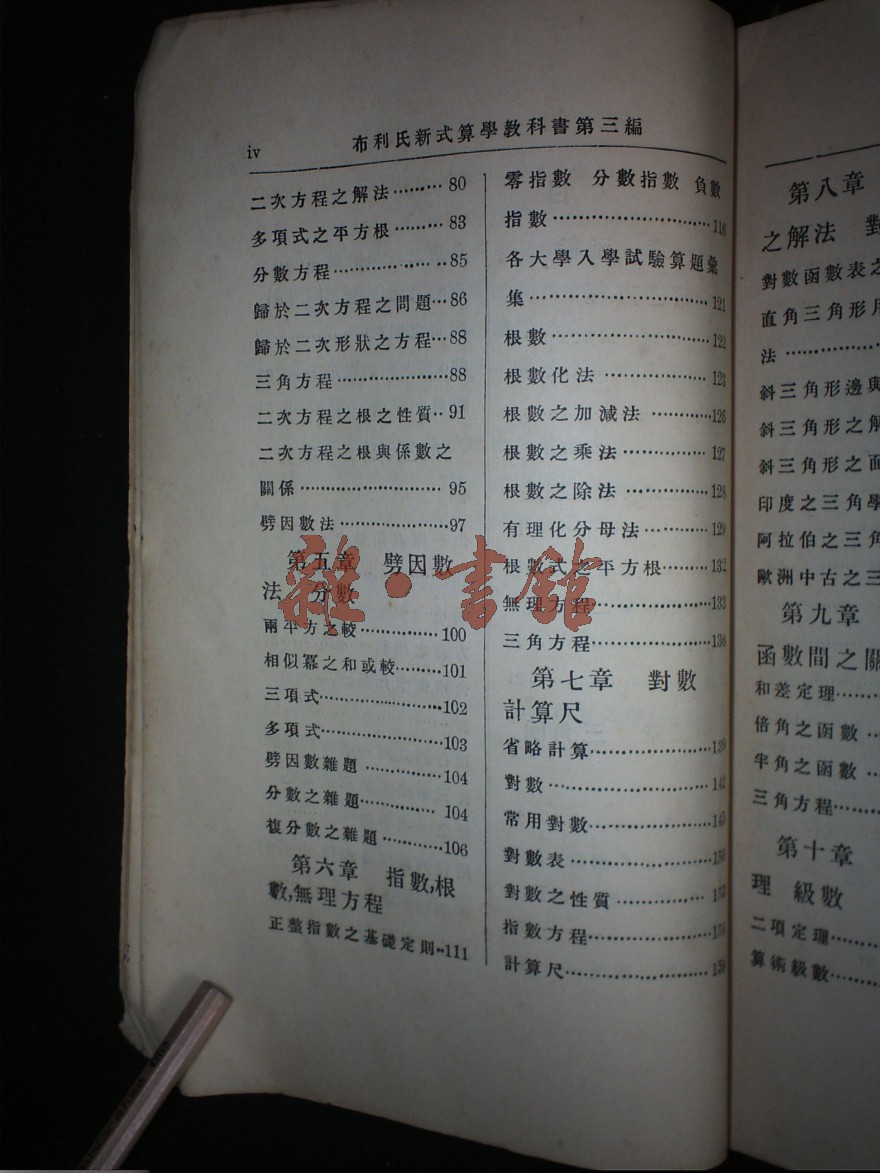 iv
布利氏新式算學敎科書第三編
二次方程之解法……… 80
多項式之平方根……… 83
分數方程……………85
歸於二次方程之問題…86
歸於二次形狀之方程…88
三角方程………………88
二次方程之根之性質‥91
二次方程之根與係數之
關係…………………… 95
劈因數法………………97
第五章 劈因數
法 分數
兩平方之較……………100
相似冪之和或較………101
三項式…………………102
多項式…………………103
劈因數雜題……………104
分數之雜題…………… 104
複分數之雜題…………106
第六章 指數,根
數,無理方程
正整指數之基礎定則‥111
零指數 分數指數 負數
指數……………………118
各大學入學試驗算題彙
集………………………121
根數……………………122
根數化法………………123
根數之加減法…………126
根數之乘法……………127
根數之除法……………128
有理化分母法…………129
根數式之平方根………132
無理方程………………133
三角方程………………136
第七章 對數
計算尺
省略計算………………139
對數……………………142
常用對數………………145
對數表…………………
對數之性質……………
指數方程………………
計算尺…………………
第八章
之解法 對
對數函數表之
直角三角形
法……
斜三角形邊與
斜三角形之解
斜三角形之面
印度之三角學
阿拉伯之三角
歐洲中古之三
第九章
函數間之關
和差定理……
倍角之函數…
半角之函數…
三角方程……
第十章
理 級數
二項定理……
算術級數……
雜·書館